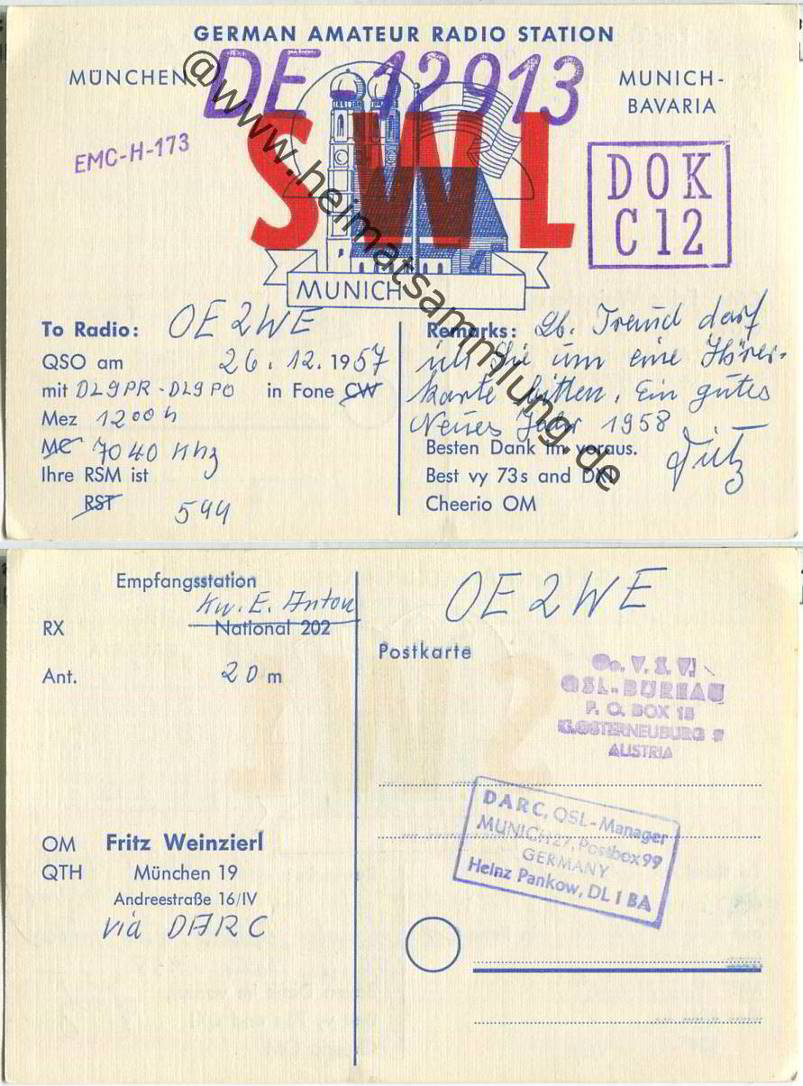 GERMAN AMATEUR RADIO STATION
MÜNCHEN
DE-12913
MUNICH-
BAVARIA
EMC-H-173
SWL
DOK
C 12
MUNICH
To Radio: OE2WE
QSO am 26.12.1957
mit DL9PR-DL9PO in Fone CW
Mez 1200 h
MC 7040 Khz
Ihre RSM ist
RST 544
Remarks: Lb. Freund darf
ich Sie um eine Hörer-
karte bitten. Ein gutes
Neues Jahr 1958
Besten Dank im voraus. Fritz
Best vy 73s and DKI
Cheerio OM
@www.heimatsammlung.de
Empfangsstation
Kw. E. Anton
RX National 202
Ant. 20 m
OM Fritz Weinzierl
QTH München 19
Andreestraße 16/IV
via DARC
OE2WE
Postkarte
Oe. V. S. V.
QSL-BUREAU
P. O. BOX 15
KLOSTERNEUBURG
AUSTRIA
DARC, QSL-Manager
MUNICH 27, Postbox 99
GERMANY
Heinz Pankow, DL 1 BA